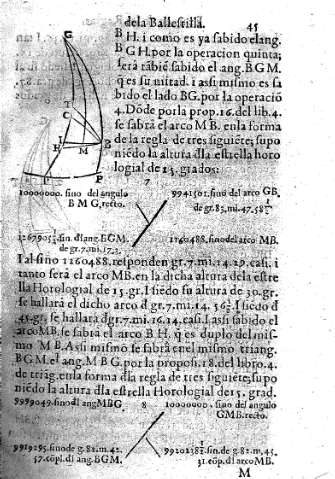 dela Ballestilla. 45
B H. i como es ya sabido el ang.
B G H. por la operacion quinta;
será tãbié sabido el ang. B G M.
q̃ es su mitad. i assi mismo es sa
bido el lado BG. por la operació
4. Dõde por la prop. 16. del lib. 4.
se sabrá el arco M B. en la forma
de la regla de tres siguiéte; supo
niédo la altura dla estrella horo
logial de 15. grados:
G
T
C
I
H
M
B
P
7
10000000. sino del angulo
B M G, recto.
9941501. sino del arco GB,
de gr. 83. mi. 47. 58
sin. dl ang. BGM.
de gr. 7. mi.
1160488. sino del arco MB.
I al sino 1160488. respondẽn gr. 7. mi. 14. 29. casi. i
tanto será el arco MB. en la dicha altura dela estre
lla Horologial de 15. gr. I siẽdo su altura de 30. gr.
se hallará el dicho arco đ gr. 7. mi. 14. 36 I siẽdo đ
45. gr. se hallará đ gr. 7. mi. 16. 14. casi. I assi sabido el
arco MB. se sabrá el arco B H. q̃ es duplo del mis-
mo M B. Assi mismo se sabrá en el mismo triang.
BGM. el ang. M B G. por la proposi. 18. del libro. 4.
de triãg. en la forma dla regla de tres siguiéte; supo
niẽdo la altura dla estre. Horologial de 15. grad.
9999049. sino dl ang MBG
8
10000000. sino del angulo
GMB. recto.
9919295. sino de g. 82. m. 42.
57. cõpl. dl ang. BGM.
sin. de g. 82. m. 45.
31. cõp. del arco MB.
M